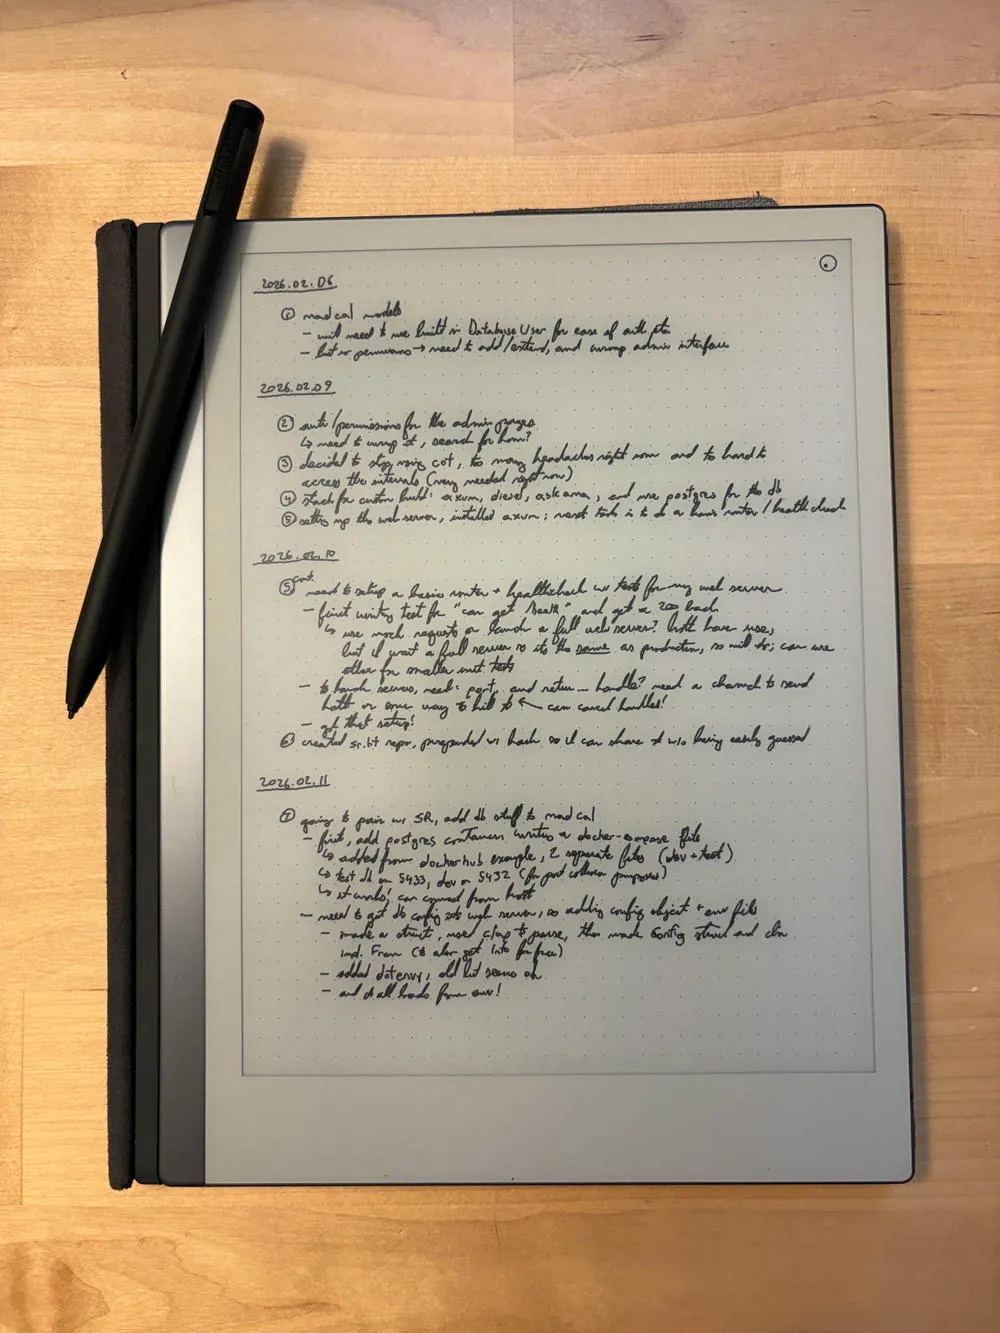 2026.02.06
① madcal models
- will need to use built in Database User for ease of auth ptn
- but no permissions → need to add/extend, and wrap admin interface
2026.02.09
② auth/permissions for the admin pages
↳ need to wrap it, search for how?
③ decided to stop using cot, too many headaches right now and too hard to
access the internals (very needed right now)
④ stack for custom build: axum, diesel, askama, and use postgres for the db
⑤ setting up the web server, installed axum; next task is to do a basic router/health check
2026.02.10
⑤ cont. need to setup a basic router + healthcheck w/ tests for my web server
- first writing test for "can get /health" and get a 200 back
↳ use mock requests or launch a full web server? both have use,
but I want a full server so it's the same as production, so will do; can use
other for smaller unit tests
- to launch server, need: port, and return... handle? need a channel to send
halt or some way to kill it ← can cancel handles!
- got that setup!
⑥ created sr.ht repo, prepended w/ hash so I can share it w/o being easily guessed
2026.02.11
⑦ going to pair w/ SR, add db stuff to madcal
- first, add postgres containers writing a docker-compose file
↳ added from dockerhub example, 2 separate files (dev + test)
↳ test db on 5433, dev on 5432 (for port collision purposes)
↳ it works! can connect from host
- need to get db config into web server, so adding config object + env file
- made a struct, used clap to parse, then made Config struct and
impl. From (to also get Into for free)
- added dotenvy, old but seems ok
- and it all loads from env!